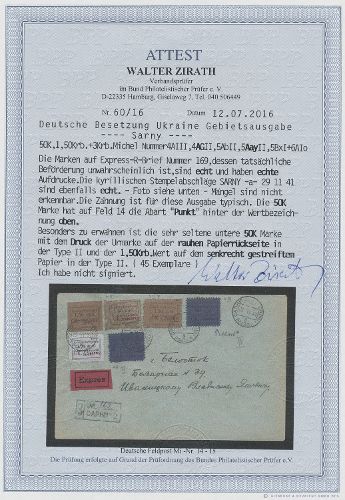 ATTEST
WALTER ZIRATH
Verbandsprüfer
im Bund Philatelistischer Prüfer e.V.
D-22335 Hamburg, Giselaweg 7, Tel. 040 506449
Nr. 60/16 Datum 12.07.2016
Deutsche Besetzung Ukraine Gebietsausgabe
---- Sarny ----
50K,1,50Krb.+3Krb.Michel Nummer4AIII,4AGII,5AbII,5AayII,5BxI+6AIo
Die Marken auf Express-R-Brief Nummer 169,dessen tatsächliche
Beförderung unwahrscheinlich ist,sind echt und haben echte
Aufdrucke.Die kyrillischen Stempelabschläge SARNY -a- 29 11 41
sind ebenfalls echt. - Foto siehe unten - Mängel sind nicht
erkennbar.Die Zähnung ist für diese Ausgabe typisch. Die 50K
Marke hat auf Feld 14 die Abart "Punkt" hinter der Wertbezeich-
nung oben.
Besonders zu erwähnen ist die sehr seltene untere 50K Marke
mit dem Druck der Urmarke auf der rauhen Papierrückseite in
der Type II und der 1,50Krb.Wert auf dem senkrecht gestreiften
Papier in der Type II. ( 45 Exemplare )
Ich habe nicht signiert.
Walter Zirath
Expres
САРНЫ
Deutsche Feldpost Mi-Nr. 14 - 15
Die Prüfung erfolgte auf Grund der Prüfordnung des Bundes Philatelistischer Prüfer e.V.